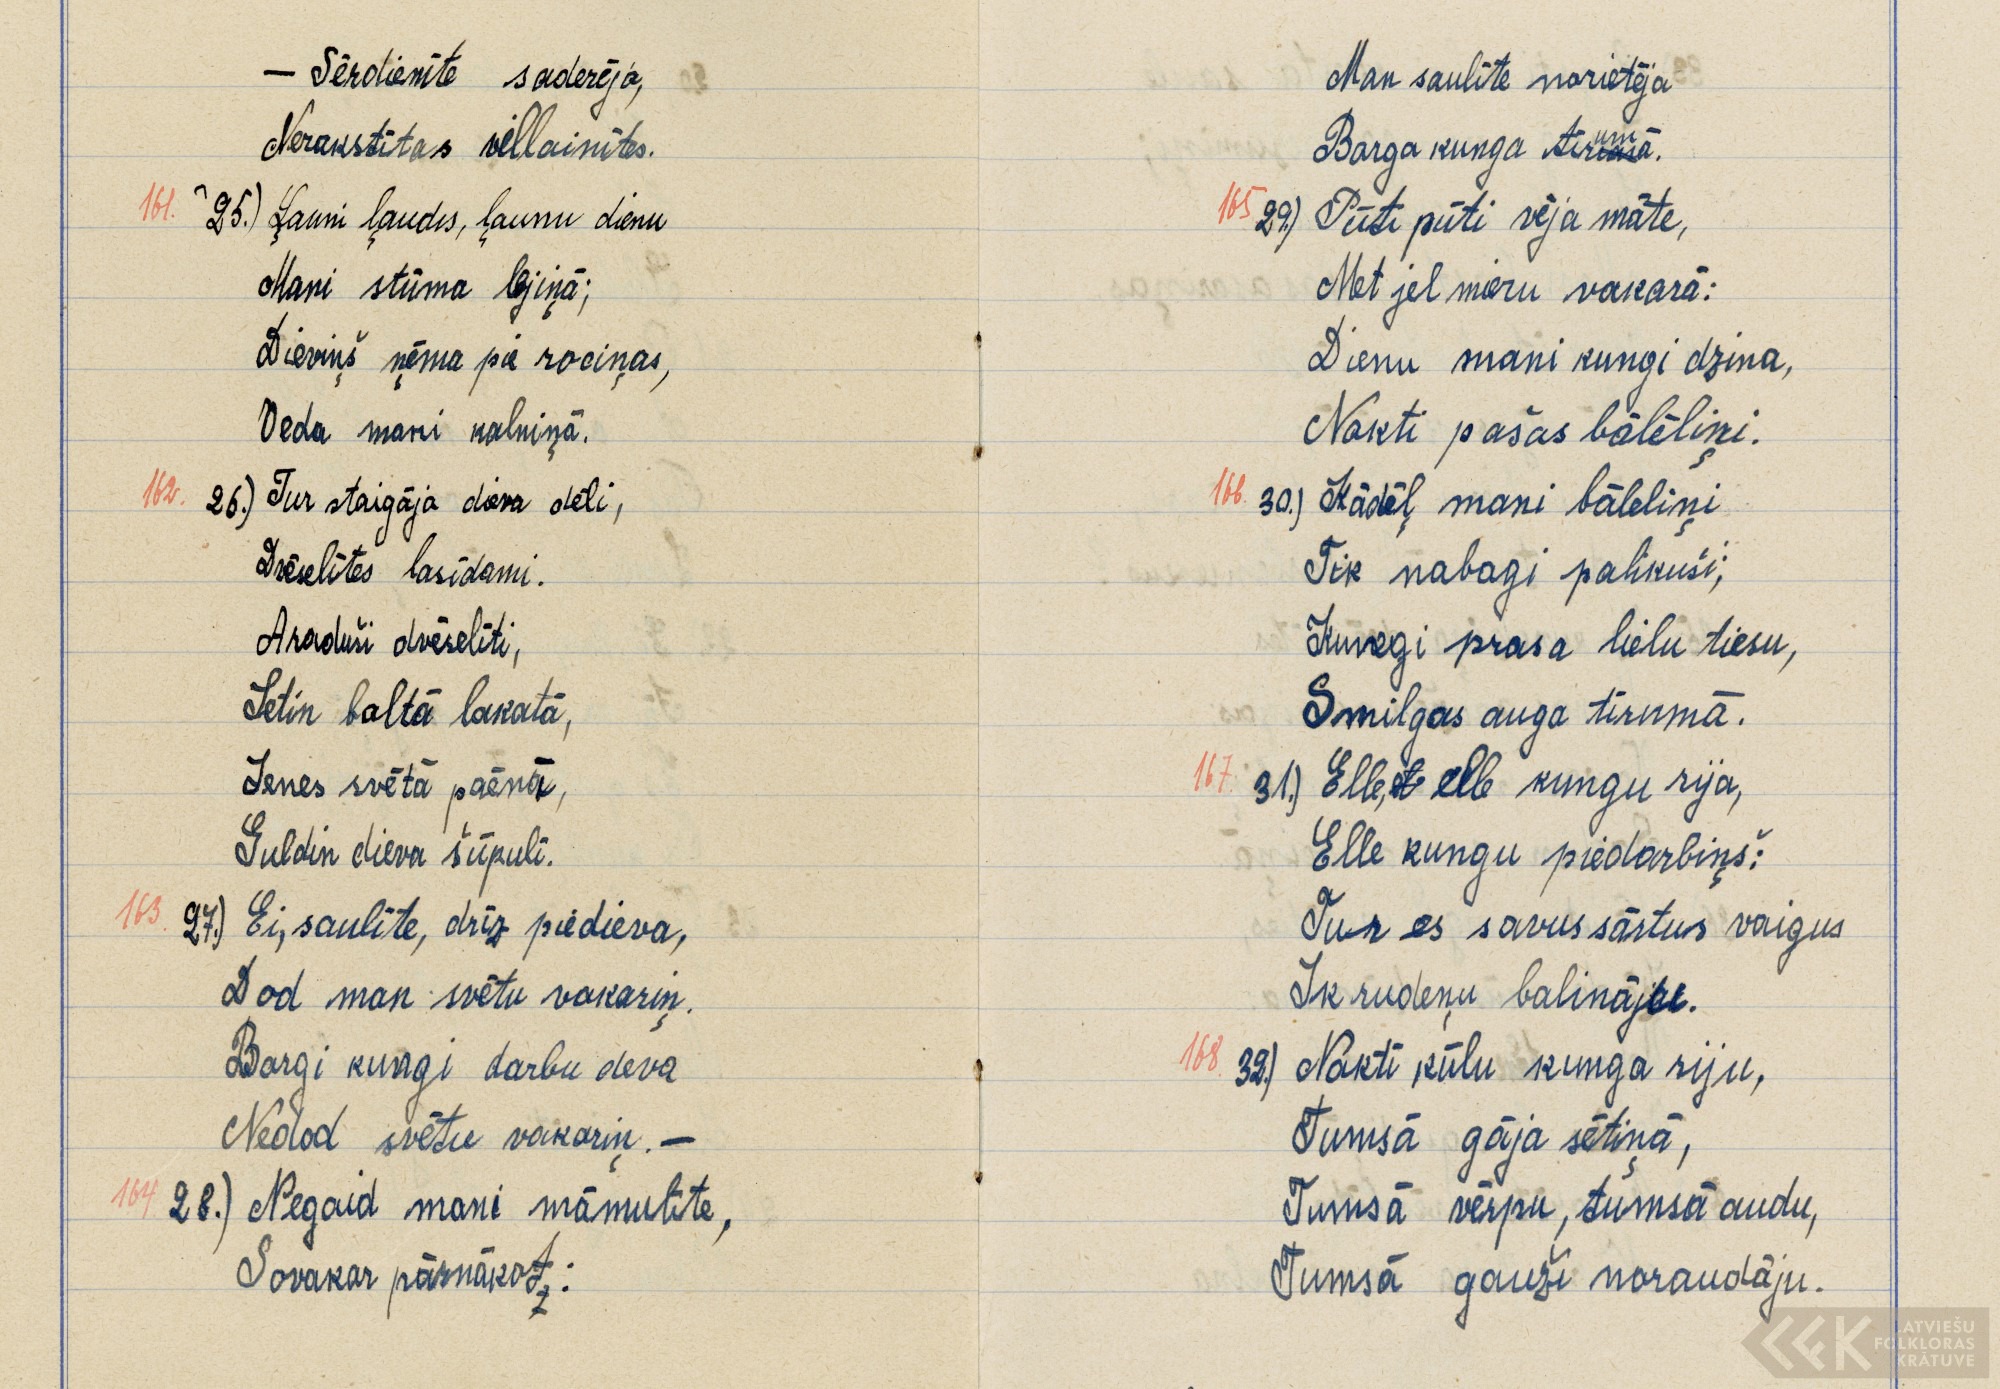 — Sērdienīte saderēja,
Nerakstītas villainītes.
161. 25.) Ļauni ļaudis, ļaunu dienu
Mani stūma lejiņā;
Dieviņš ņēma pie rociņas,
Veda mani kalniņā.
162. 26.) Tur staigāja dieva dēli,
Dvēselītes lasīdami.
Araduši dvēselīti,
Ietin baltā lakatā,
Ienes svētā paēnā,
Guldin dieva šūpulī.
163. 27.) Ei, saulīte, drīz piedieva,
Dod man svētu vakariņ.
Bargi kungi darbu deva
Nedod svētu vakariņ. —
164 28.) Negaid mani māmulīte,
Sovakar pārnākot:
Man saulīte norietēja
Barga kunga tīrumā.
165 29.) Pūti pūti vēja māte,
Met jel mieru vakarā:
Dienu mani kungi dzina,
Nakti pašas bālēliņi.
166. 30.) Kādēļ mani bāleliņi
Tik nabagi palikuši;
Kungi prasa lielu tiesu,
Smilgas auga tīrumā.
167. 31.) Elle, elle kungu rija,
Elle kungu piedarbiņš:
Tur es savus sārtus vaigus
Ik rudeņu balināju.
168. 32.) Naktī kūlu kunga riju,
Tumsā gāja sētiņā,
Tumsā vērpu, tumsā audu,
Tumsā gauži noraudāju.
LATVIEŠU
FOLKLORAS
KRĀTUVE